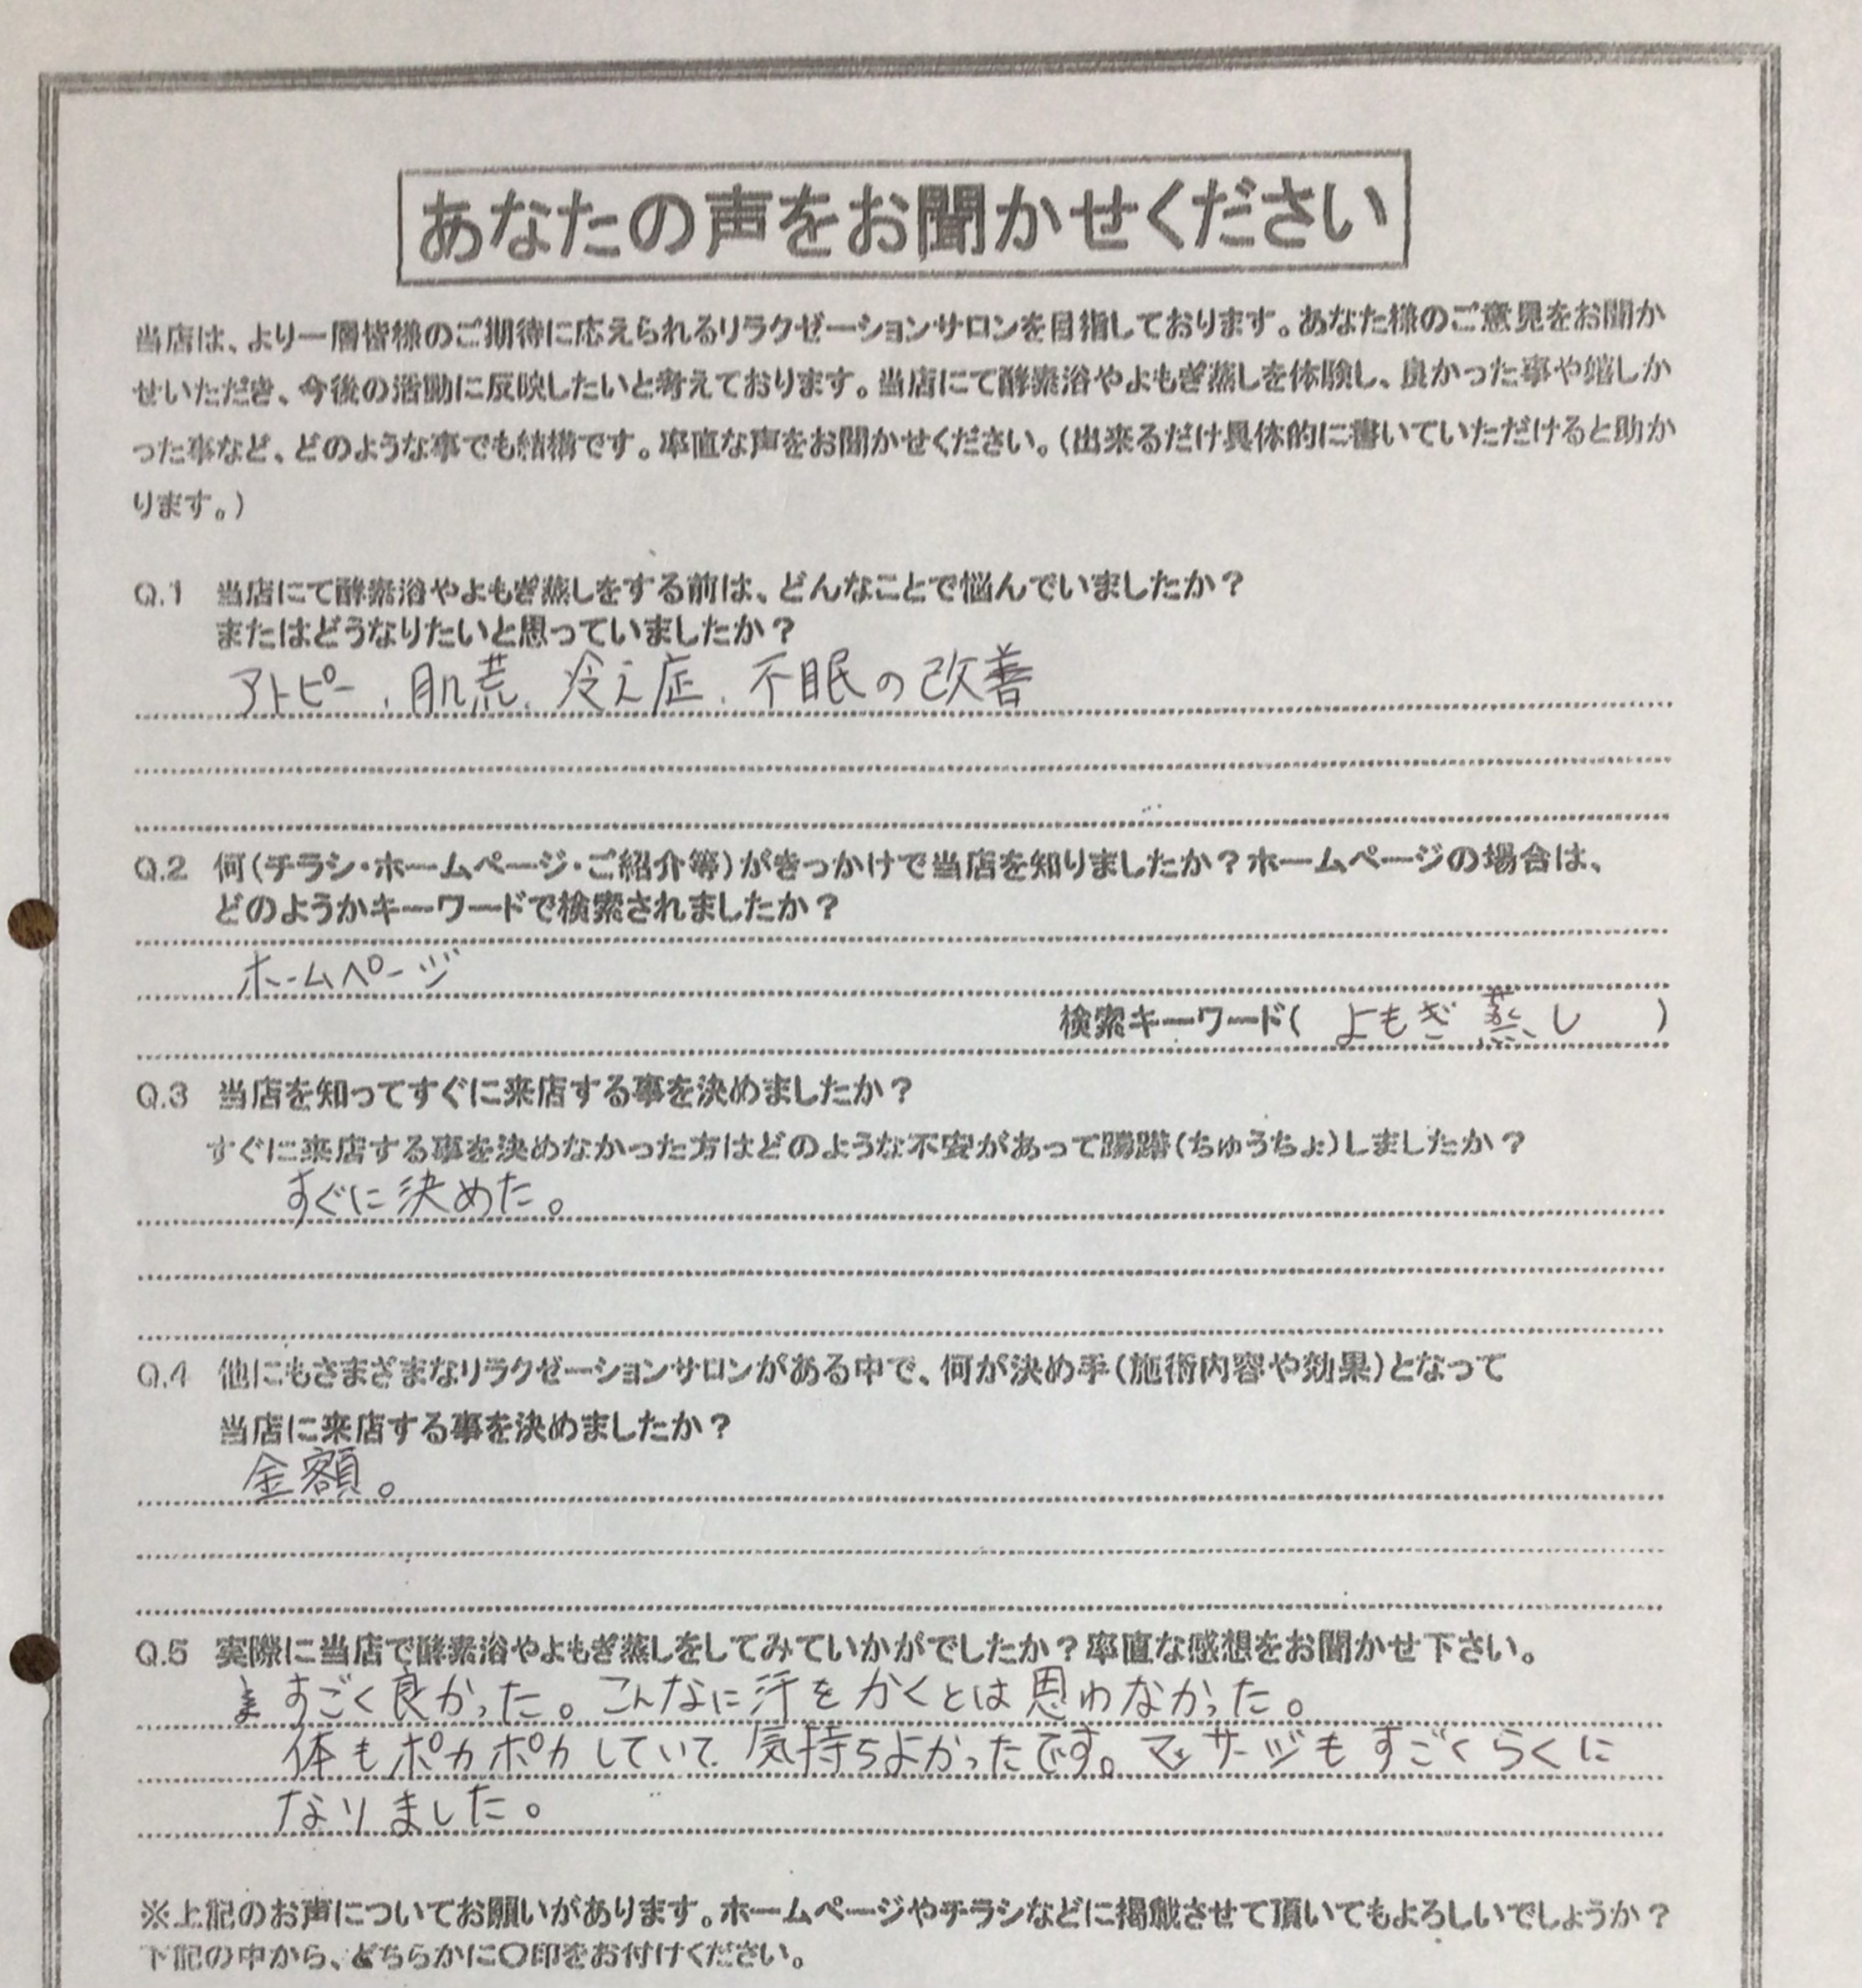 あなたの声をお聞かせください
当店は、より一層皆様のご期待に応えられるリラクゼーションサロンを目指しております。あなた様のご意見をお聞か
せいただき、今後の活動に反映したいと考えております。当店にて酵素浴やよもぎ蒸しを体験し、良かった事や嬉しか
った事など、どのような事でも結構です。率直な声をお聞かせください。(出来るだけ具体的に書いていただけると助か
ります。)
Q.1 当店にて酵素浴やよもぎ蒸しをする前は、どんなことで悩んでいましたか?
またはどうなりたいと思っていましたか?
アトピー、肌荒、冷え症、不眠の改善
Q.2 何(チラシ・ホームページ・ご紹介等)がきっかけで当店を知りましたか?ホームページの場合は、
どのようかキーワードで検索されましたか?
ホームページ
検索キーワード( よもぎ蒸し )
Q.3 当店を知ってすぐに来店する事を決めましたか?
すぐに来店する事を決めなかった方はどのような不安があって躊躇(ちゅうちょ)しましたか?
すぐに決めた。
Q.4 他にもさまざまなリラクゼーションサロンがある中で、何が決め手(施術内容や効果)となって
当店に来店する事を決めましたか?
金額。
Q.5 実際に当店で酵素浴やよもぎ蒸しをしてみていかがでしたか?率直な感想をお聞かせ下さい。
すごく良かった。こんなに汗をかくとは思わなかった。
体もポカポカしていて気持ちよかったです。マッサージもすごくらくに
なりました。
※上記のお声についてお願いがあります。ホームページやチラシなどに掲載させて頂いてもよろしいでしょうか?
下記の中から、どちらかに〇印をお付けください。